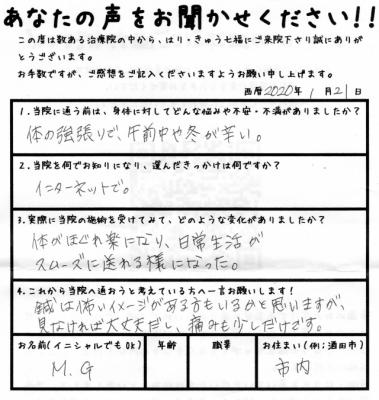 あなたの声をお聞かせください!!
この度は数ある治療院の中から、はり・きゅう七福にご来院下さり誠にありが
とうございます。
お手数ですが、ご感想をご記入くださいますようお願い申し上げます。
西暦2020年 1月21日
1.当院に通う前は、身体に対してどんな悩みや不安・不満がありましたか?
体の強張りで、午前中や冬が辛い。
2.当院を何でお知りになり、選んだきっかけは何ですか?
インターネットで。
3.実際に当院の施術を受けてみて、どのような変化がありましたか?
体がほぐれ楽になり、日常生活が
スムーズに送れる様になった。
4.これから当院へ通おうと考えている方へ一言お願いします!
鍼は怖いイメージがある方もいるかと思いますが、
見なければ大丈夫だし、痛みも少しだけです。
お名前(イニシャルでもOK) 年齢 職業 お住まい(例:酒田市)
M.G 市内